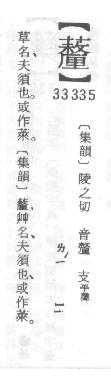 【薹】
33335
〔集韻〕陵之切 音釐 支平聲
ㄌㄧˊ li
草名、夫須也。或作萊。〔集韻〕薹、艸名、夫須也、或作萊。